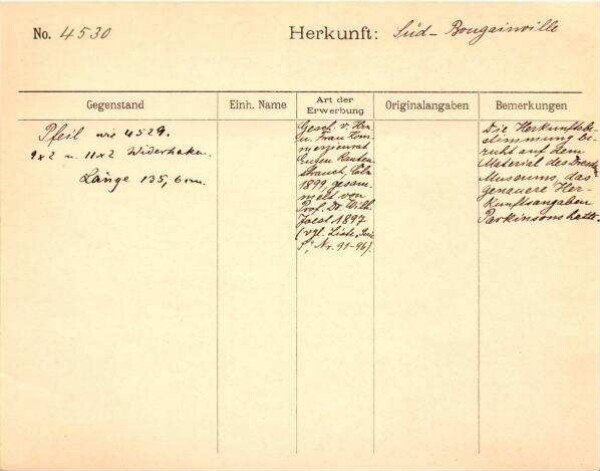 No. 4530
Herkunft: Süd-Bougainville
Gegenstand
Einh. Name
Art der Erwerbung
Originalangaben
Bemerkungen
Pfeil wie 4529.
9x2 u. 11x2 Widerhaken.
Länge 135,6 cm.
Gesch. v. Herr
u. Frau Kom-
merzienrat
Eugen Rauten-
strauch, Cöln
1899, gesam-
melt von
Prof. Dr. Wilh.
Joest 1897
(vgl. Liste, Serie
Nr. 91-96).
Die Herkunftsbe-
stimmung be-
ruht auf dem
Material des Dresd.
Museums, das
genauere Her-
kunftsangaben
Parkinsons hatte.